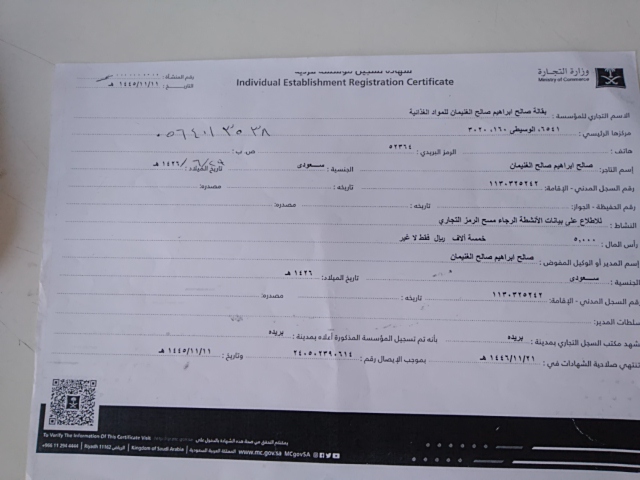 وزارة التجارة
Ministry of Commerce
شهادة تسجيل مؤسسة فردية
Individual Establishment Registration Certificate
رقم المنشأة :
التاريخ : ١٤٤٥/١١/١١ هـ
الاسم التجاري للمؤسسة : بقالة صالح ابراهيم صالح الغنيمان للمواد الغذائية
مركزها الرئيسي : ٦٥٤١، الوسيطى ،١٦٠ ٣٠٢٠ ٠٥٦٤٠١٣٥٣٨
هاتف : الرمز البريدي : ٥٢٣٦٤ ص ب :
إسم التاجر: صالح ابراهيم صالح الغنيمان الجنسية : سعودى تاريخ الميلاد : ١٤٢٦ هـ
رقم السجل المدني - الإقامة: ١١٣٠٣٢٥٢٤٢ تاريخه : مصدره:
رقم الحفيظة - الجواز: تاريخه : مصدره:
النشاط : للاطلاع على بيانات الأنشطة الرجاء مسح الرمز التجاري
رأس المال : ٥,٠٠٠ خمسة آلاف ريال فقط لا غير
إسم المدير أو الوكيل المفوض : صالح ابراهيم صالح الغنيمان
الجنسية : سعودى تاريخ الميلاد: ١٤٢٦ هـ
رقم السجل المدني - الإقامة: ١١٣٠٣٢٥٢٤٢ تاريخه : مصدره:
سلطات المدير:
شهد مكتب السجل التجاري بمدينة : بريده بأنه تم تسجيل المؤسسة المذكورة أعلاه بمدينة : بريده
تنتهي صلاحية الشهادات في : ١٤٤٦/١١/٢١ هـ بموجب الإيصال رقم : ٢٤٠٥٠٢٣٩٠٦١٤ وتاريخ : ١٤٤٥/١١/١١ هـ
To Verify The Information Of This Certificate Visit بإمكانكم التحقق من صحة هذه الشهادة بالدخول على
+966 11 204 4444 | Riyadh 11162 الرياض | Kingdom of Saudi Arabia المملكة العربية السعودية | www.mc.gov.sa MCgovSA